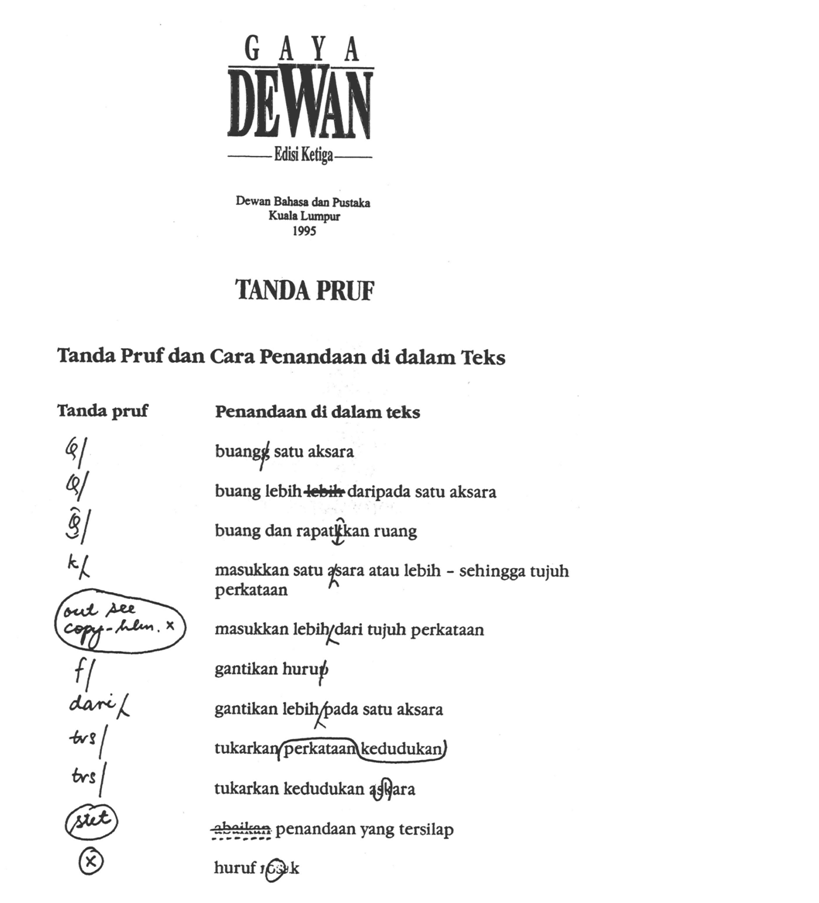 GAYA
DEWAN
Edisi Ketiga
Dewan Bahasa dan Pustaka
Kuala Lumpur
1995
TANDA PRUF
Tanda Pruf dan Cara Penandaan di dalam Teks
Tanda pruf Penandaan di dalam teks
buangg satu aksara
buang lebih lebih daripada satu aksara
buang dan rapatkkan ruang
k/ masukkan satu asara atau lebih – sehingga tujuh
perkataan
out see
copy-hlm. x
masukkan lebih/dari tujuh perkataan
f/ gantikan hurup
dari/ gantikan lebih/pada satu aksara
trs/ tukarkan perkataan kedudukan
trs/ tukarkan kedudukan askara
stet abaikan penandaan yang tersilap
x huruf k